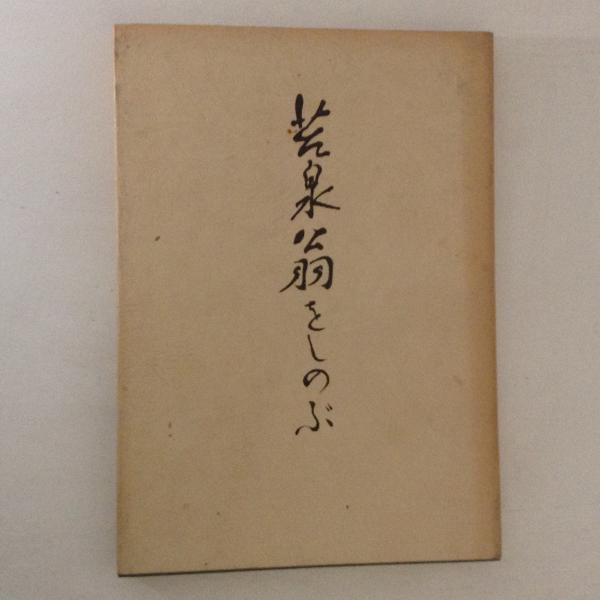 泉翁をしのぶ